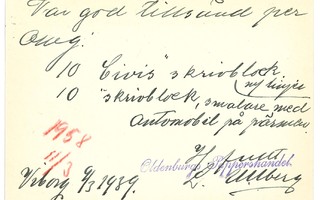 Var god tillsänd per
omg.
10 "Civis" skrivblock
ny linjer
10 " skrivblock, smalare med
automobil på pärmen.
1958
11/3
Oldenburgs Pappershandel
Viborg 9/3 1939.